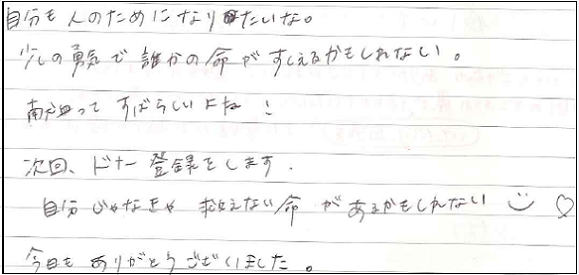 自分も人のためになりたいな。
少しの勇気で誰かの命がすくえるかもしれない。
献血って すばらしいよね！
次回、ドナー登録をします.
自分じゃなきゃ 救えない命 があるかもしれない ☺ ♡
今日も ありがとうございました。